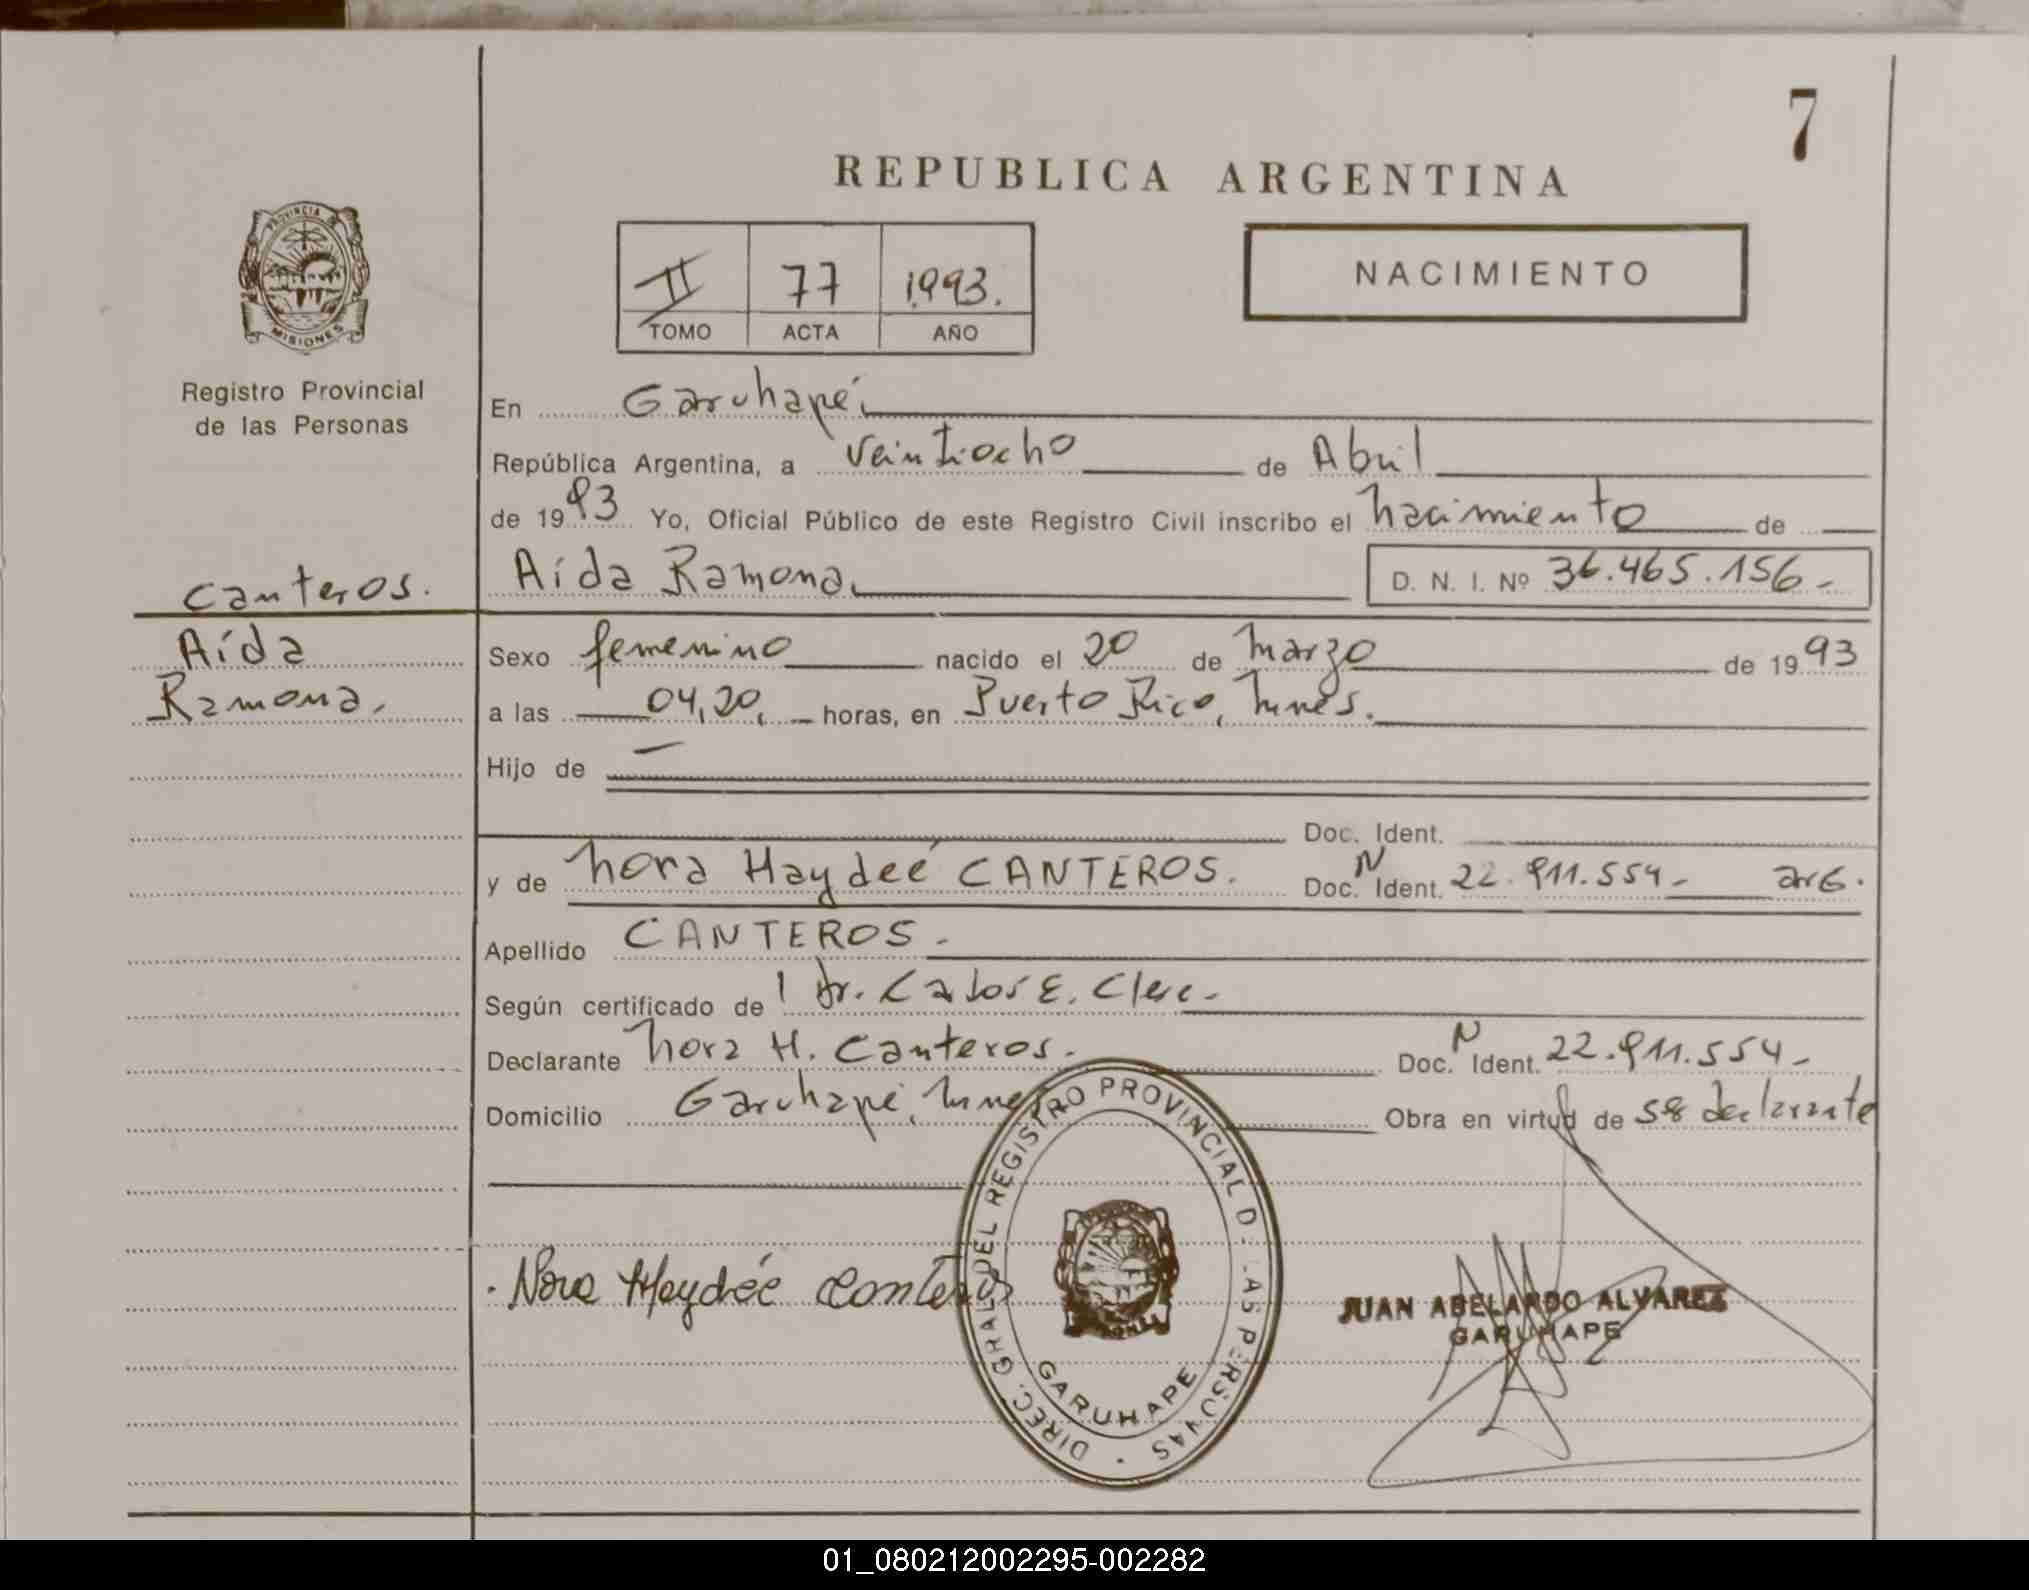 7
REPUBLICA ARGENTINA
PROVINCIA DE
MISIONES
NACIMIENTO
II 77 1993.
TOMO ACTA AÑO
Registro Provincial
de las Personas
En Garuhapé,
República Argentina, a veintiocho de Abril
de 1993 Yo, Oficial Público de este Registro Civil inscribo el nacimiento de
Canteros. Aída Ramona. D. N. I. Nº 36.465.156-
Aída Sexo femenino nacido el 20 de marzo de 1993
Ramona. a las 04,20, horas, en Puerto Rico, Mnes.
Hijo de —
Doc. Ident.
y de Nora Haydeé CANTEROS. Doc. N Ident. 22.911.554- arG.
Apellido CANTEROS.-
Según certificado de l Dr. Carlos E. Clerc-
Declarante Nora H. Canteros.- Doc. N Ident. 22.911.554-
Domicilio Garuhapé, Mnes Obra en virtud de ser declarante
DIREC. GRAL. DEL REGISTRO PROVINCIAL DE LAS PERSONAS
GARUHAPE
. Nora Haydée Canteros
JUAN ABELARDO ALVAREZ
GARUHAPE
01_080212002295-002282